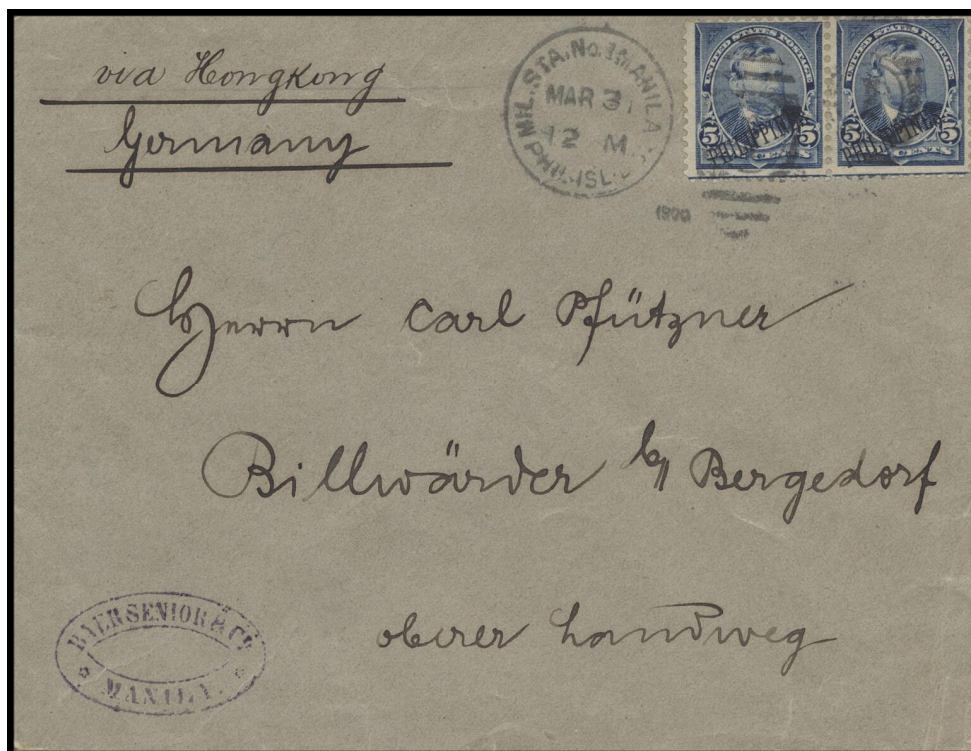 via Hongkong
Germany
MIL. STA. No. 1 MANILA
MAR 31
12 M
PHIL. ISL.
1900
UNITED STATES POSTAGE
5 PHILIPPINES 5
UNITED STATES POSTAGE
5 PHILIPPINES 5
Herrn Carl Pfützner
Billwärder b/ Bergedorf
oberer Landweg
BAER SENIOR & Co
MANILA.